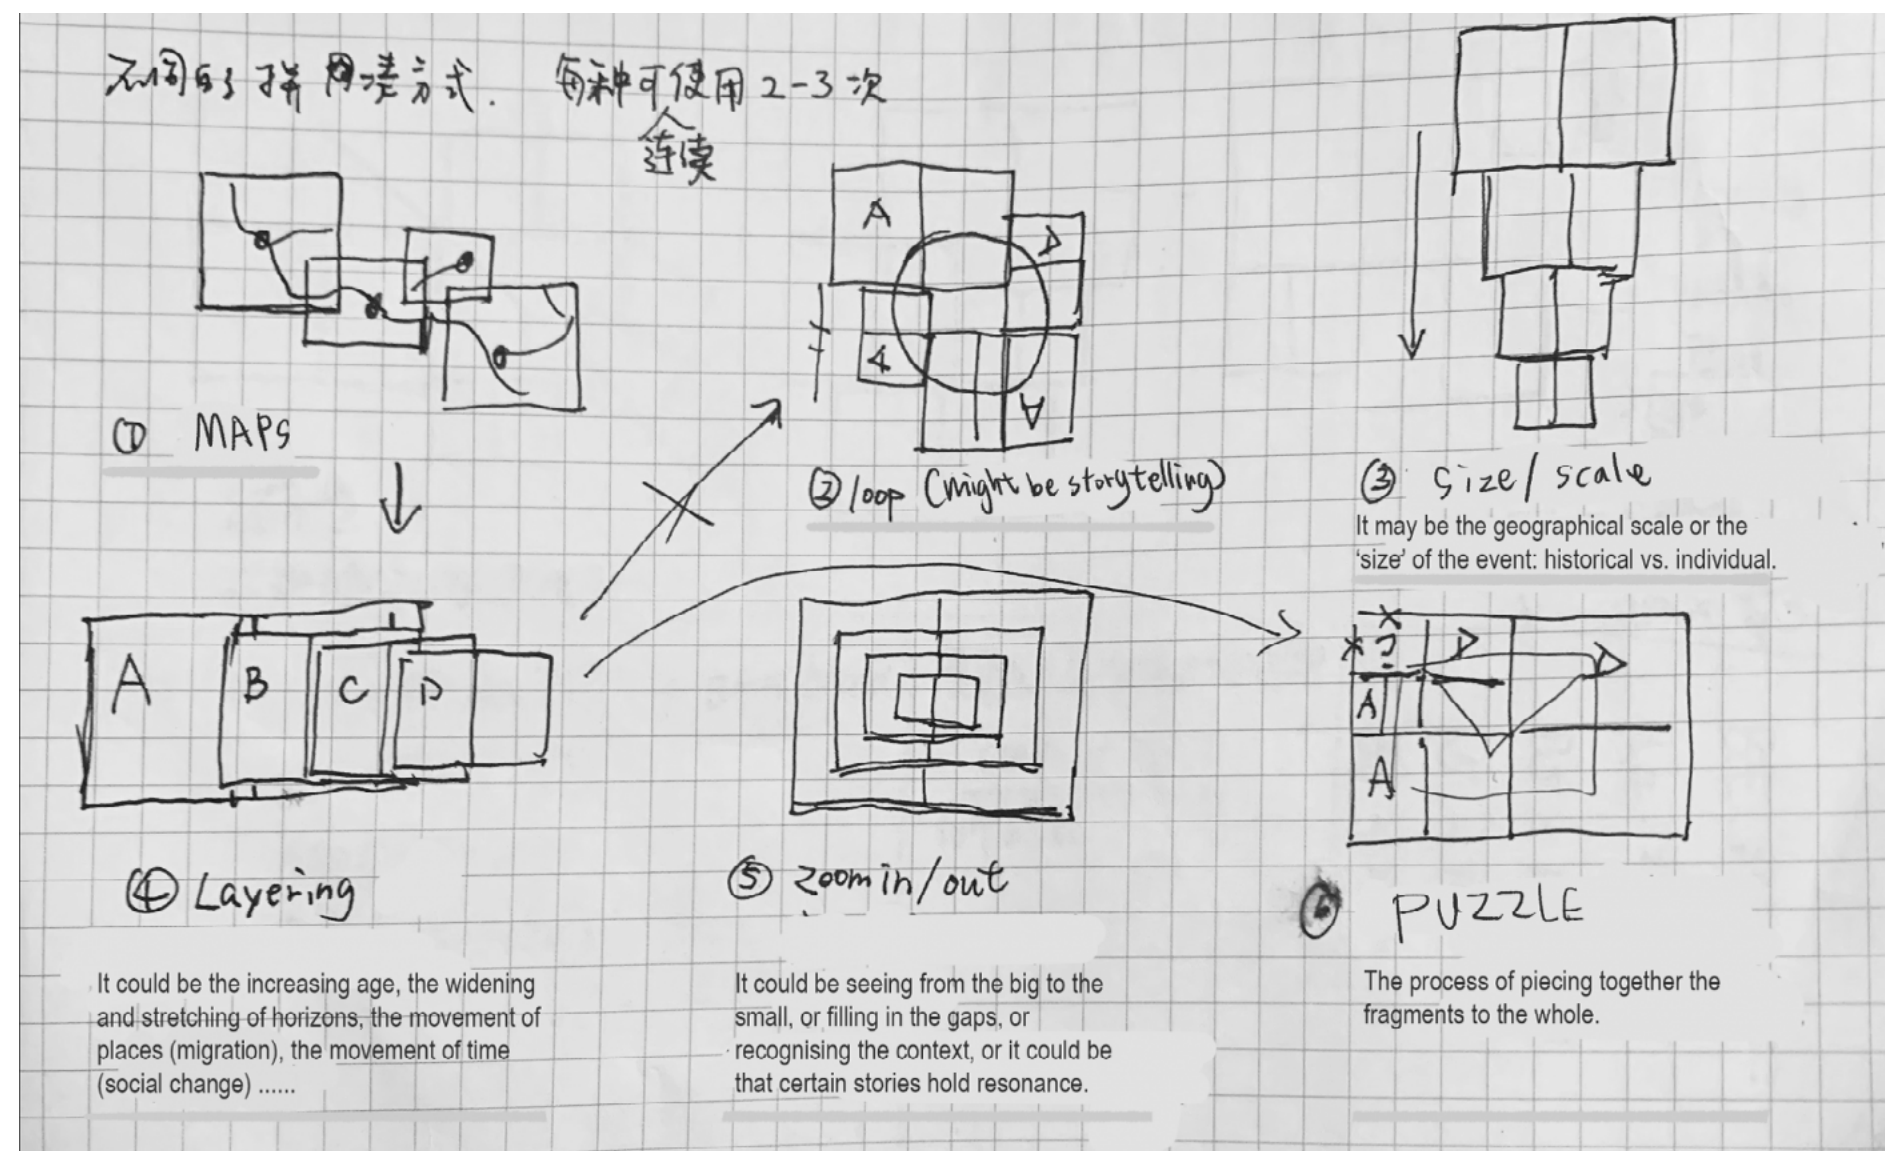 不同的拼 方式. 每种可使用2-3次
连续
A
D
4
A
① MAPS
② loop (might be storytelling)
③ size/scale
It may be the geographical scale or the
‘size’ of the event: historical vs. individual.
A B C D
? D D
A
A
④ Layering
⑤ zoom in/out
⑥ PUZZLE
It could be the increasing age, the widening
and stretching of horizons, the movement of
places (migration), the movement of time
(social change) ......
It could be seeing from the big to the
small, or filling in the gaps, or
recognising the context, or it could be
that certain stories hold resonance.
The process of piecing together the
fragments to the whole.